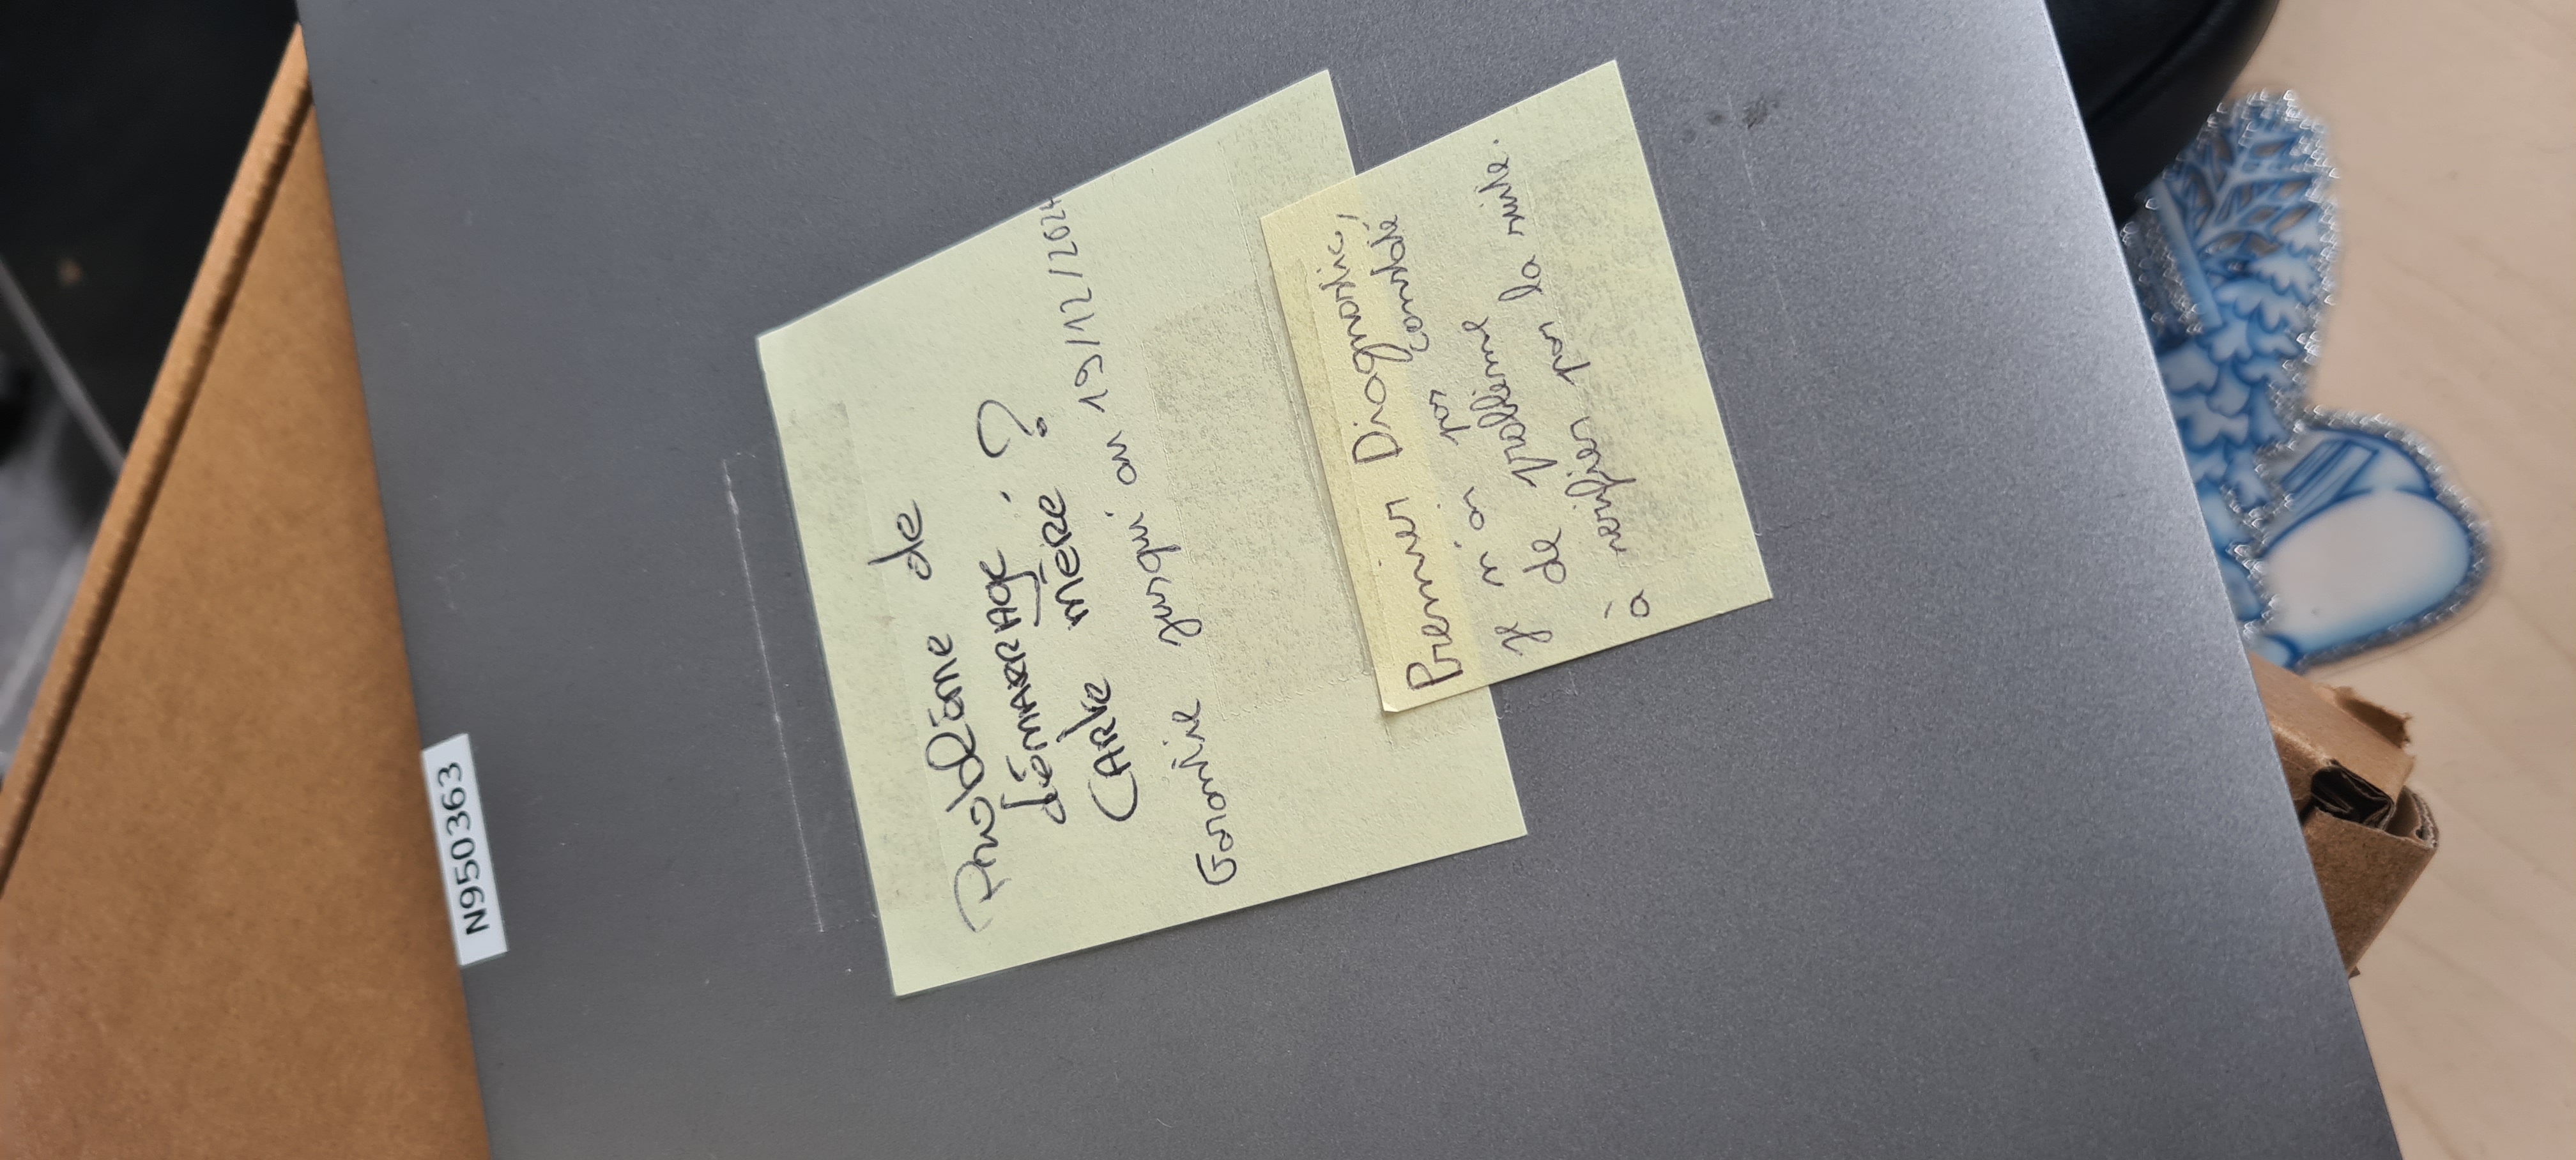 N950363
Problème de
démarrage
Carte mère ?
Garantie jusqu'au 19/12/2024
Premier Diagnostic,
je n'ai pas constaté
de problème
à verifier par la suite.